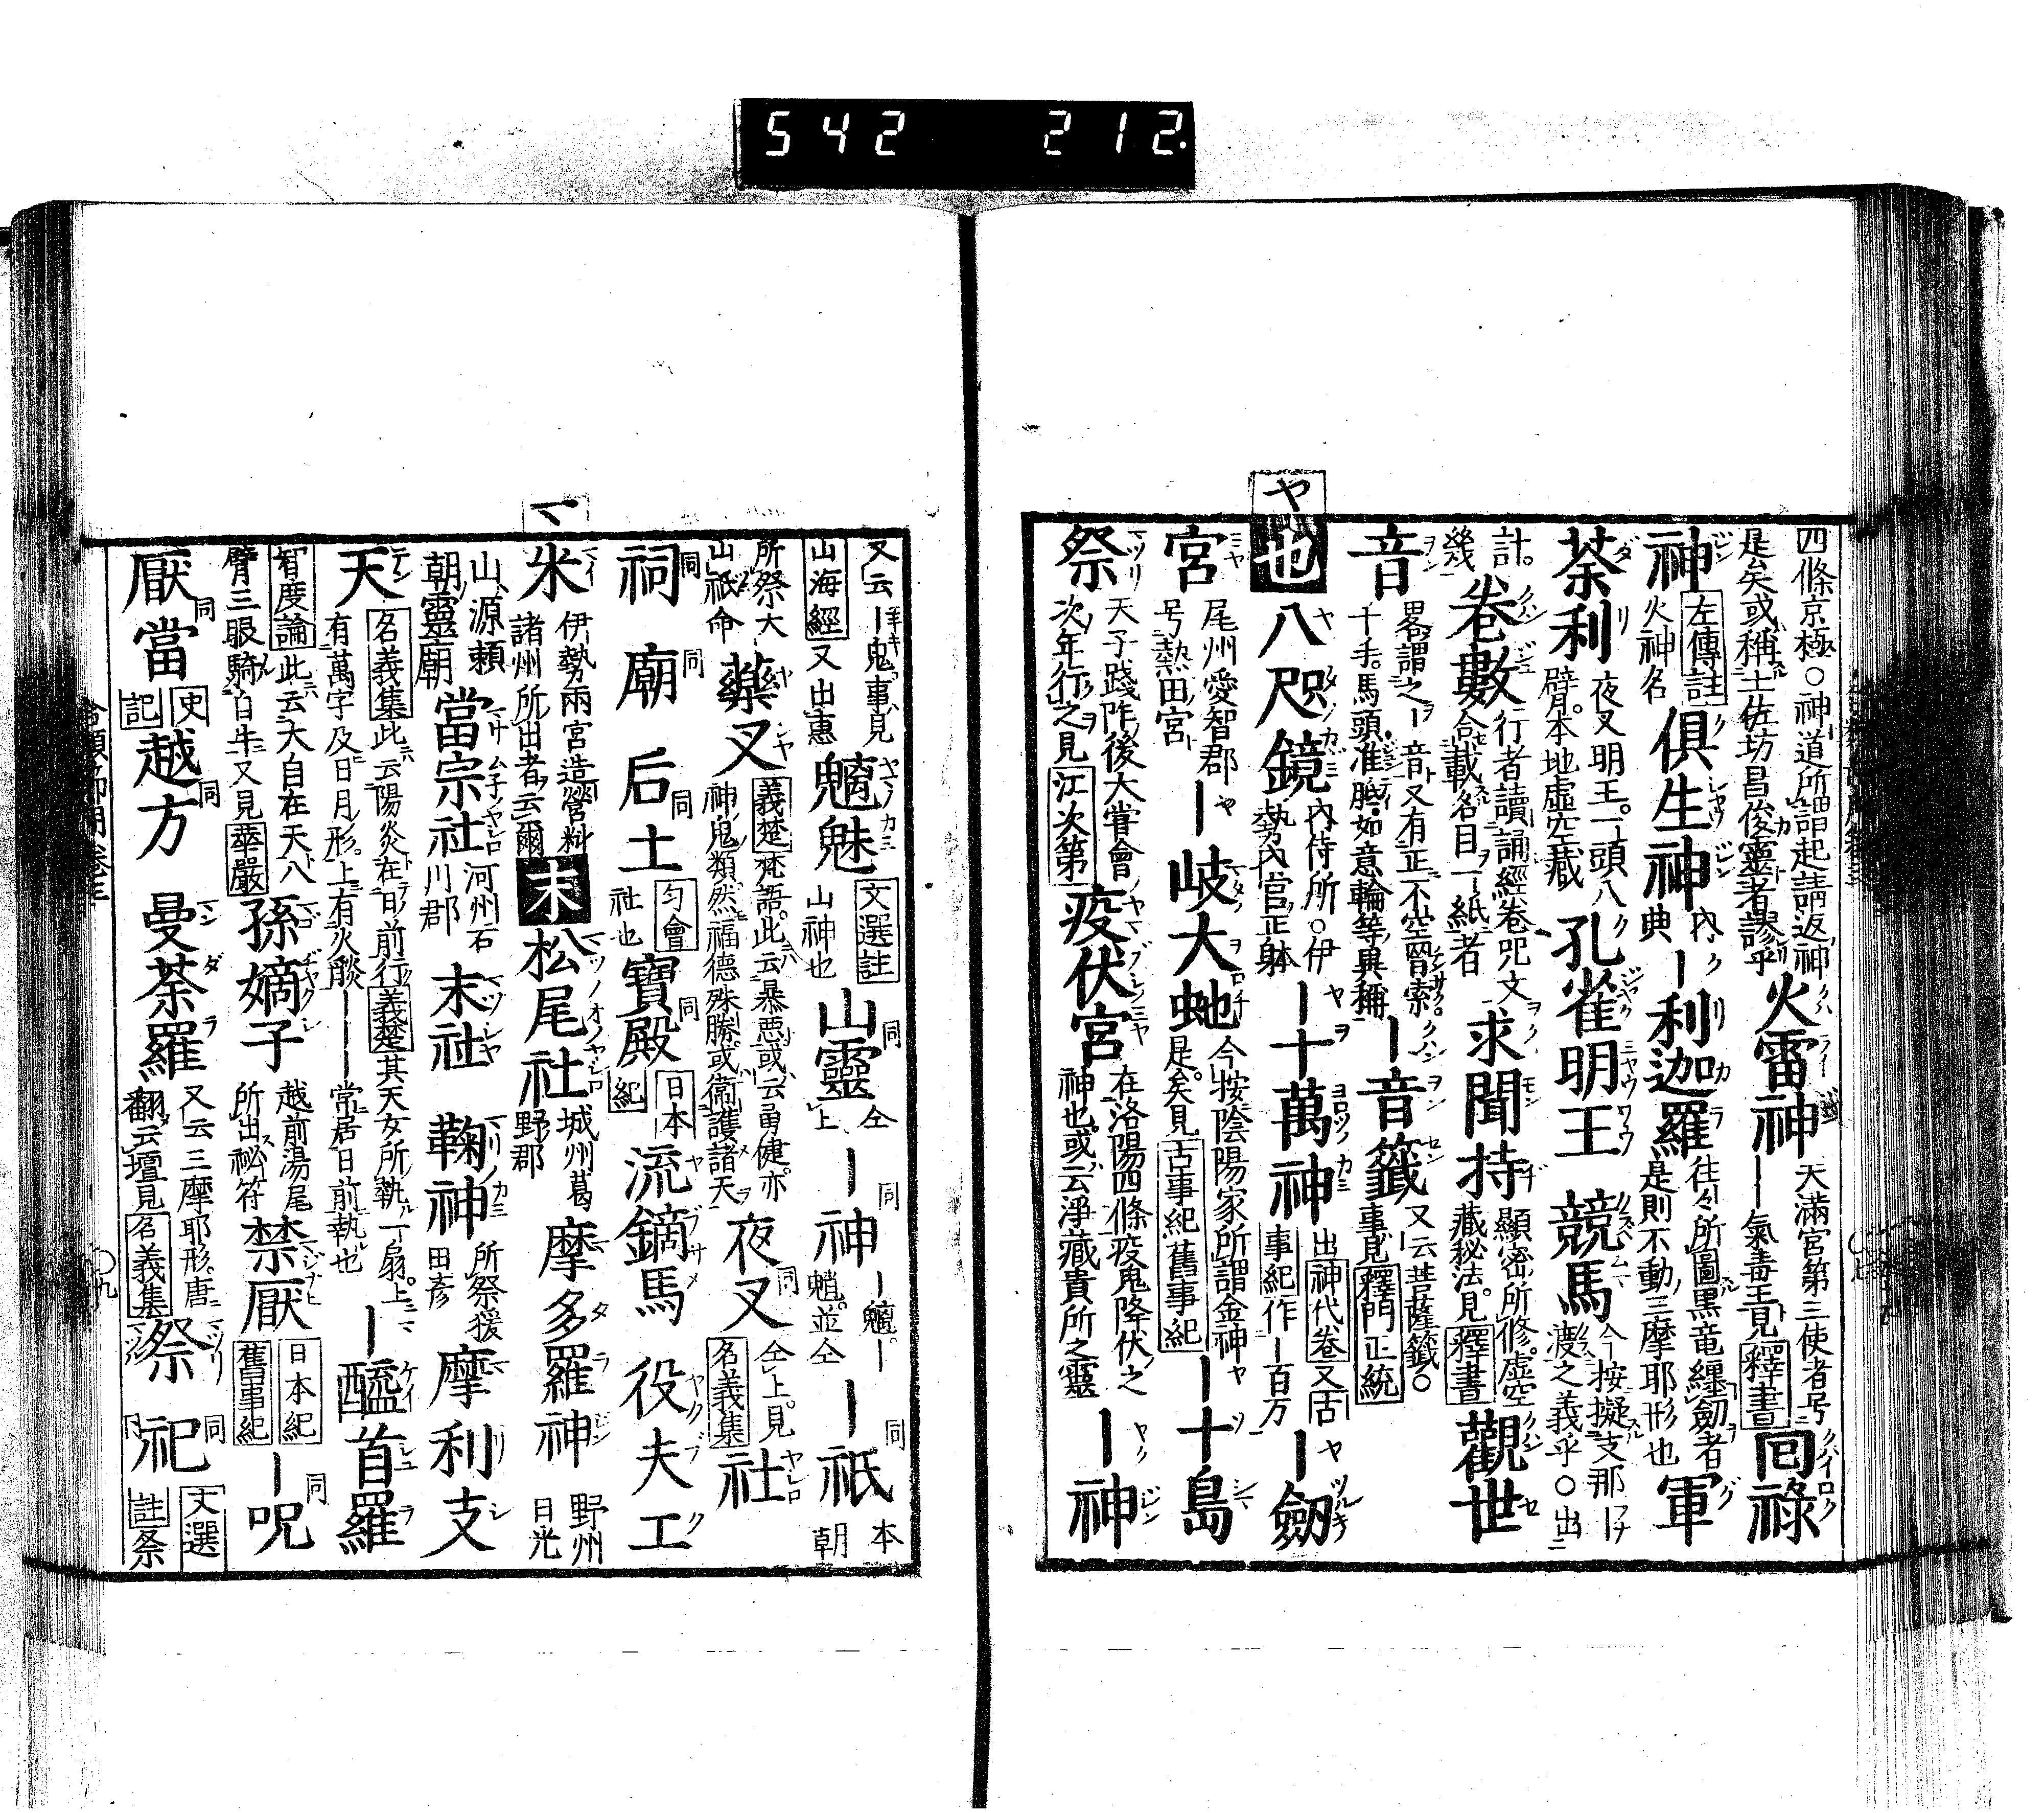 542 212.
四條京極。○神道所謂起請返神
是矣或稱土佐坊昌俊靈者謬乎
火雷神 天滿宮第三使者号
一一氣毒王見釋書
回祿
神 左傳註
火神名
俱生神 內典
ー利迦羅 往々所圖黒竜纏劔者
是則不動三摩耶形也
軍
荼利 夜叉明王。一頭八
臂。本地虚空藏
孔雀明王
競馬 今按擬支那ー
渡之義乎○出
計。幾
卷數 行者讀誦經卷咒文
合載名目一紙者
求聞持 顯密所修。虚空
藏秘法。見釋書
觀世
音 畧謂之ー音又有正不空羂索。
千手。馬頭。准胝。如意輪等異稱
ー音籤 又云菩薩籤○
事見釋門正統
ヤ
也
八咫鏡 內侍所。○伊
勢內宮正躰
ー十萬神 出神代卷又古
事紀作ー百万
ー劔
宮 尾州愛智郡
号熱田宮
ー岐大虵 今按陰陽家所謂金神
是矣。見古事紀舊事紀
ー十島
祭 天子踐阼後大甞會
次年行之見江次第
疫伏宮 在洛陽四條疫鬼降伏之
神也。或云淨藏貴所之靈
ー神
又云ー鬼事見
山海經又出惠
魑魅 文選註
山神也
山靈 仝上
ー神 ー魑。ー
魈。並仝
ー祇 本朝
所祭大
山祇命
藥叉 義楚梵語。此云暴悪或云勇健。亦
神鬼類然福德殊勝或衞護諸天
夜叉 仝上。見
名義集
社
祠
廟
后土 匀會
社也
寶殿 日本紀
流鏑馬
役夫工
米 伊勢兩宮造營料
諸州所出者云爾
末
松尾社 城州葛
野郡
摩多羅神 野州
日光
山源賴
朝靈廟
當宗社 河州石
川郡
末社
鞠神 所祭猨
田彦
摩利支
天 名義集此云陽炎在日前行義楚其天女所執一扇。上
有萬字及日月形。上有火燄ーーー常居日前執也
ー醯首羅
智度論此云大自在天八
臂三眼騎白牛又見華嚴
孫嫡子 越前湯尾
所出祕符
禁厭 日本紀
舊事紀
ー呪
厭當 史記
越方
曼荼羅 又云三摩耶形。唐
翻云壇見名義集
祭
祀 文選
註祭